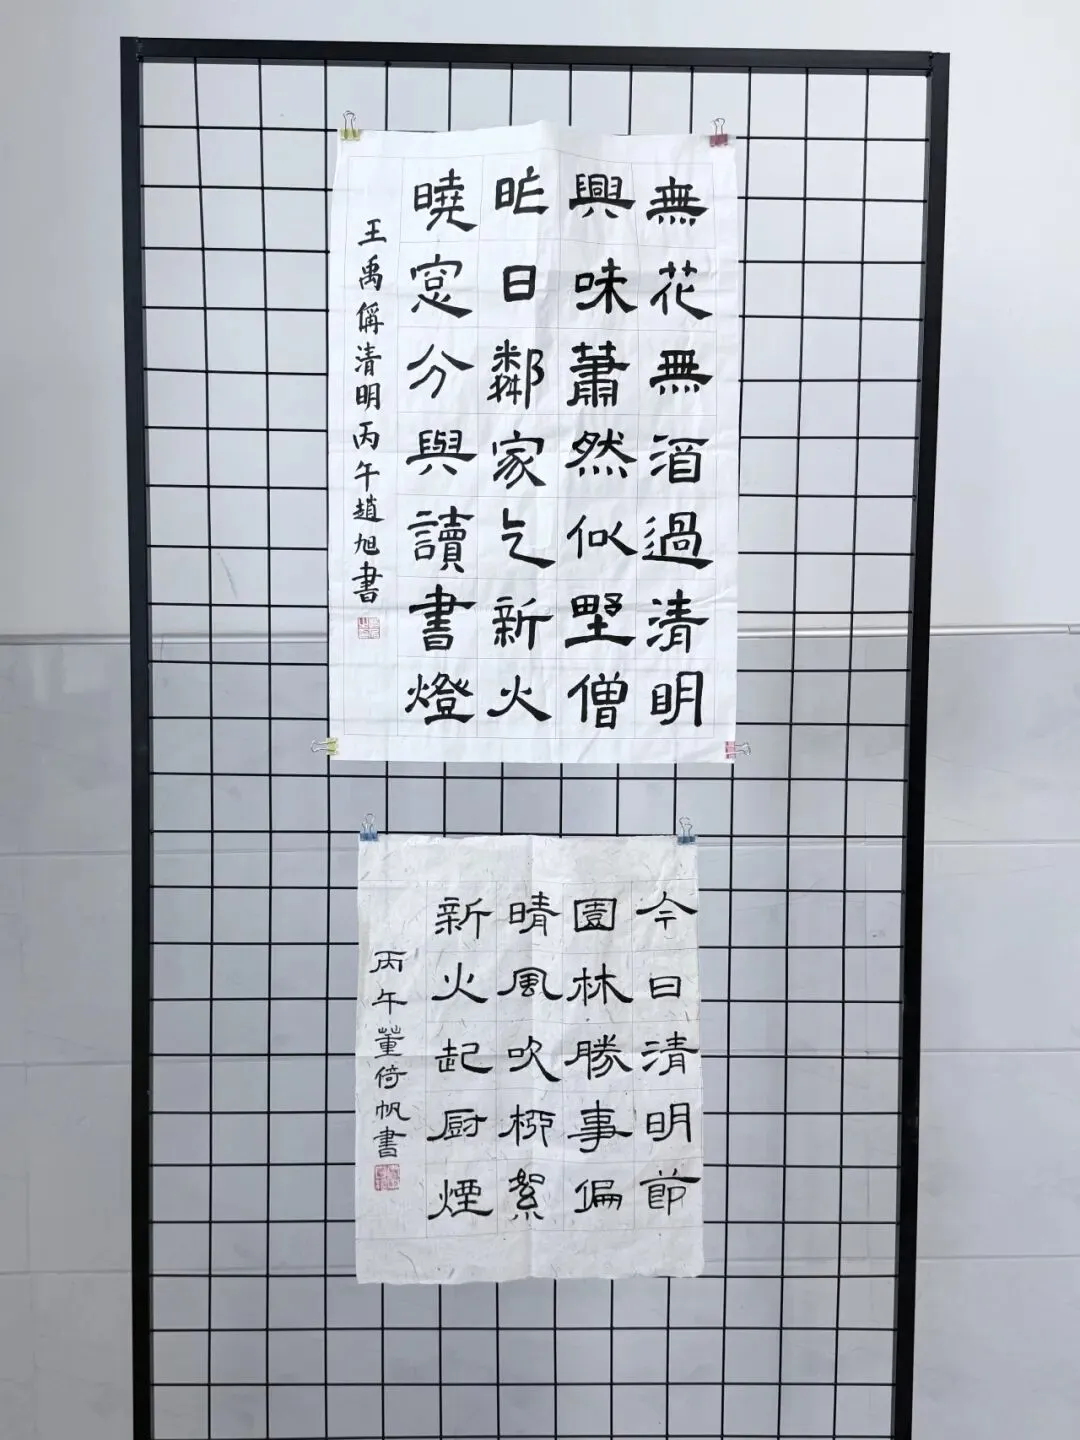 無花無酒過清明
興味蕭然似墅僧
昨日鄰家乞新火
曉窓分與讀書燈
王禹偁清明丙午趙旭書
今日清明節
園林勝事偏
晴風吹柳絮
新火起厨煙
丙午董倚帆書